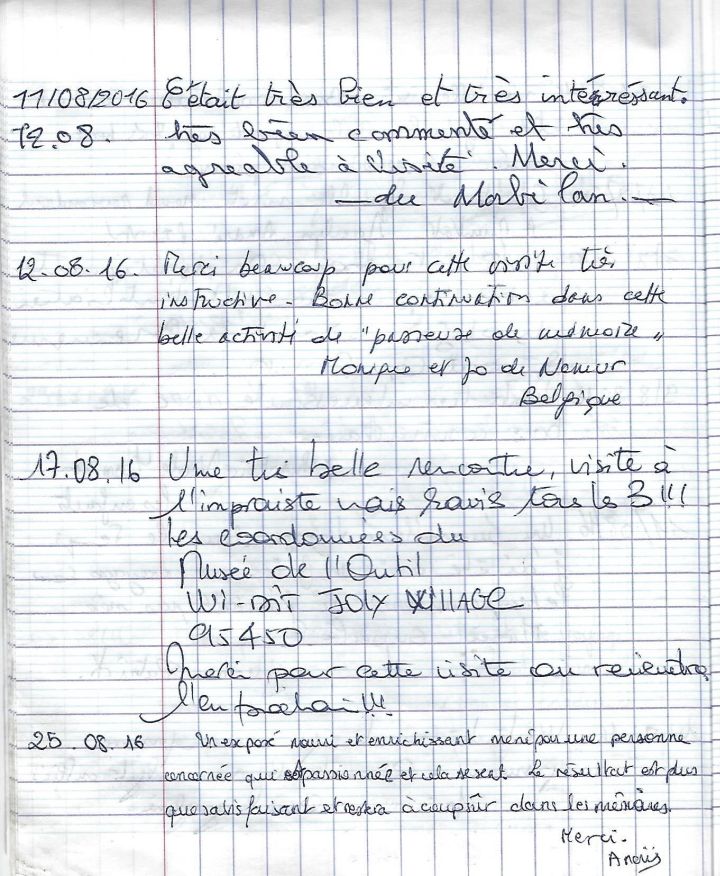 11/08/2016 C'était très bien et très intérréssant.
12.08. très bien commenté et très
agreable à visité. Merci.
— du Morbilan. —
12.08.16. Merci beaucoup pour cette visite très
instructive. Bonne continuation dans cette
belle activité de "passeuse de mémoire"
Monique et Jo de Namur
Belgique
17.08.16 Une très belle rencontre, visite à
l'improviste mais ravis tous les 3!!!
Les coordonnées du
Musée de l'Outil
WY-DIT JOLY VILLAGE
95450
Merci pour cette visite on reviendra
l'en prochain!!!
25.08.16 Un exposé nourri et enrichissant mené par une personne
concernée qui est passionnée et cela se sent. Le résultat est plus
que satisfaisant et restera à coup sûr dans les mémoires.
Merci.